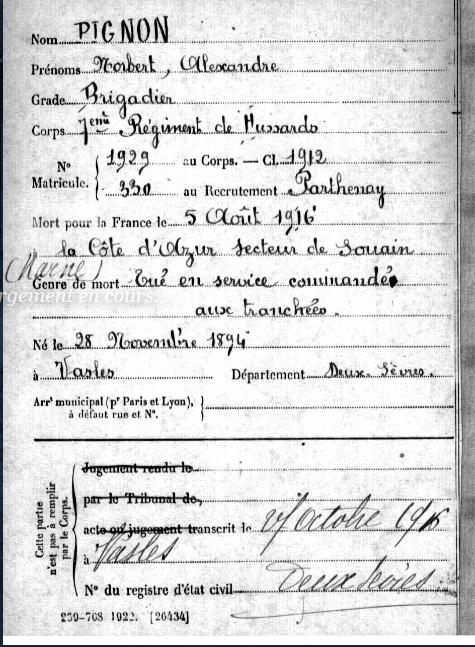 Nom PIGNON
Prénoms Norbert, Alexandre
Grade Brigadier
Corps 7eme Régiment de Hussards
N° Matricule. { 1929 au Corps. — Cl. 1912
330 au Recrutement Parthenay
Mort pour la France le 5 Août 1916
la Côte d'Azur secteur de Souain
(Marne)
Genre de mort Tué en service commandé
rgement en cours...
aux tranchées.
Né le 28 Novembre 1894
à Vasles Département Deux-Sèvres.
Arrt municipal (pr Paris et Lyon),
à défaut rue et N°.
Cette partie
n'est pas à remplir
par le Corps.
Jugement rendu le
par le Tribunal de
acte ou jugement transcrit le Octobre 1916
à Vasles
Deux Sèvres
N° du registre d'état civil
239-708 1922. [26434]